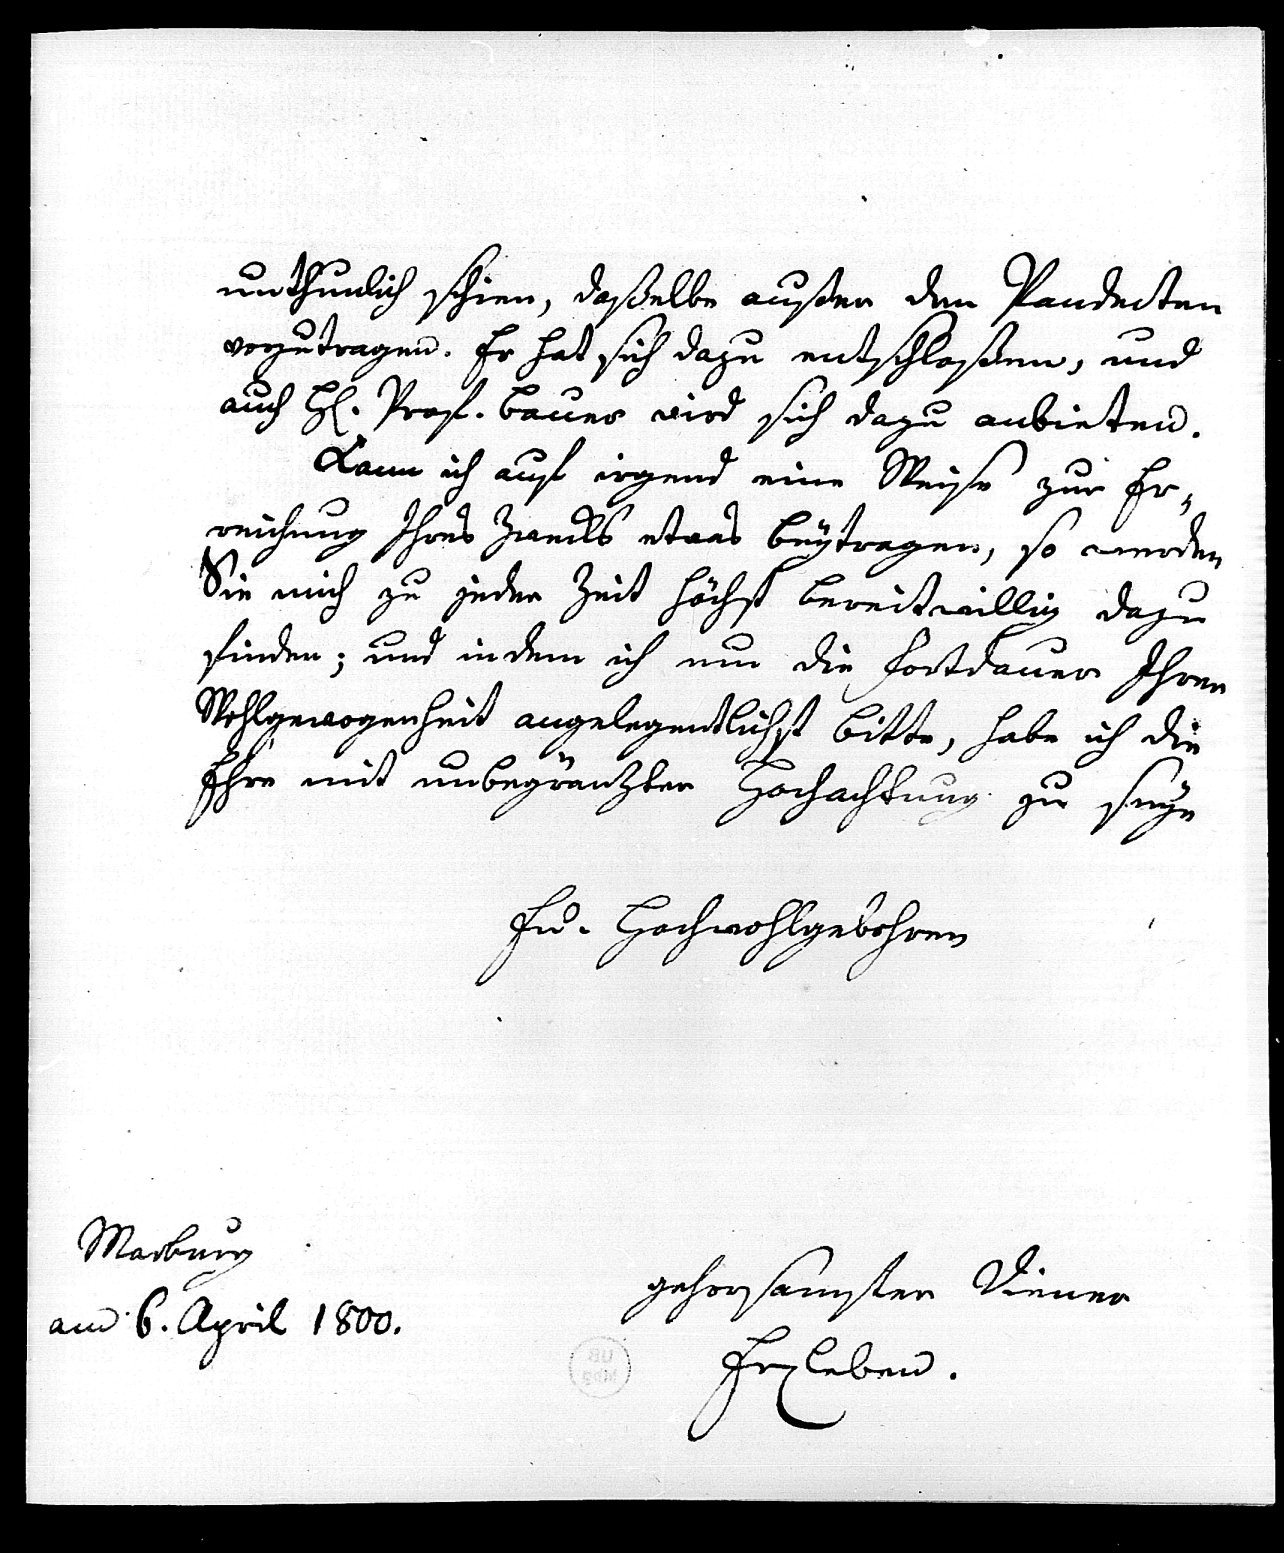 unthunlich schien, daßelbe außer den Pandecten
vorzutragen. Er hat sich dazu entschloßen, und
auch H. Prof. Bauer wird sich dazu anbieten.
Kann ich auf irgend eine Weise zur Er-
reichung Ihres Zwecks etwas beytragen, so werden
Sie mich zu jeder Zeit höchst bereitwillig dazu
finden; und indem ich um die Fortdauer Ihrer
Wohlgewogenheit angelegentlichst bitte, habe ich die
Ehre mit unbegränzter Hochachtung zu seyn
Ew. Hochwohlgebohren
Marburg
am 6. April 1800.
gehorsamster Diener
Erxleben.
UB